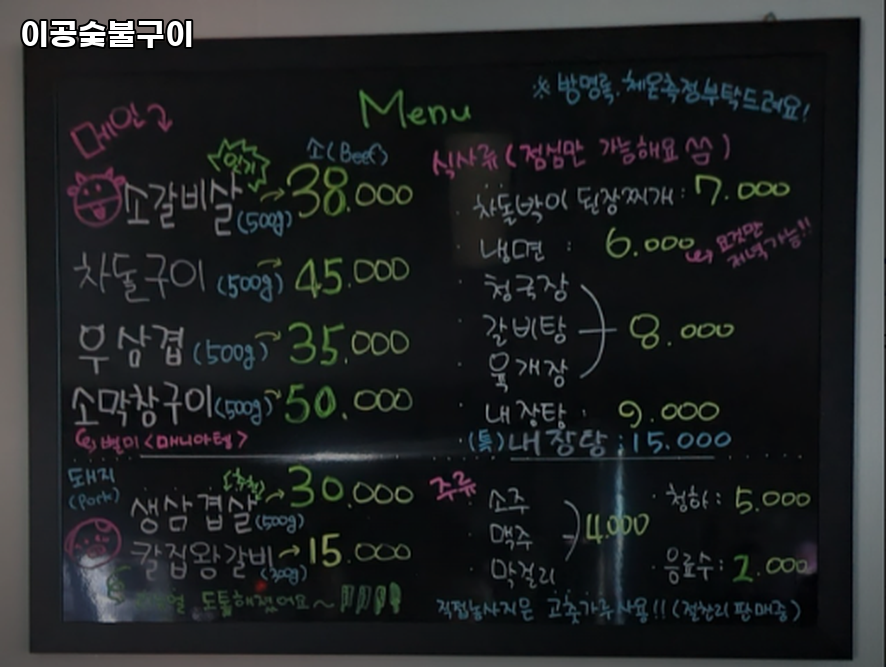 이공숯불구이
Menu
※ 방명록, 체온측정부탁드려요!
메인
인기
소(Beef)
소갈비살(500g)→38.000
차돌구이(500g)→45.000
우삼겹(500g)→35.000
소막창구이(500g)→50.000
별미<매니아템>
돼지(Pork)
추천
생삼겹살(500g)→30.000
칼집왕갈비(300g)→15.000
도톰해졌어요~
식사류(점심만 가능해요 쓰)
차돌박이 된장찌개:7.000
냉면 : 6.000
요것만
저녁가능!!
청국장
갈비탕 8.000
육개장
내장탕: 9.000
(특)내장탕:15.000
주류
소주
맥주 4.000
막걸리
청하: 5.000
음료수: 2.000
직접농사지은 고춧가루사용!!(절찬리판매중)